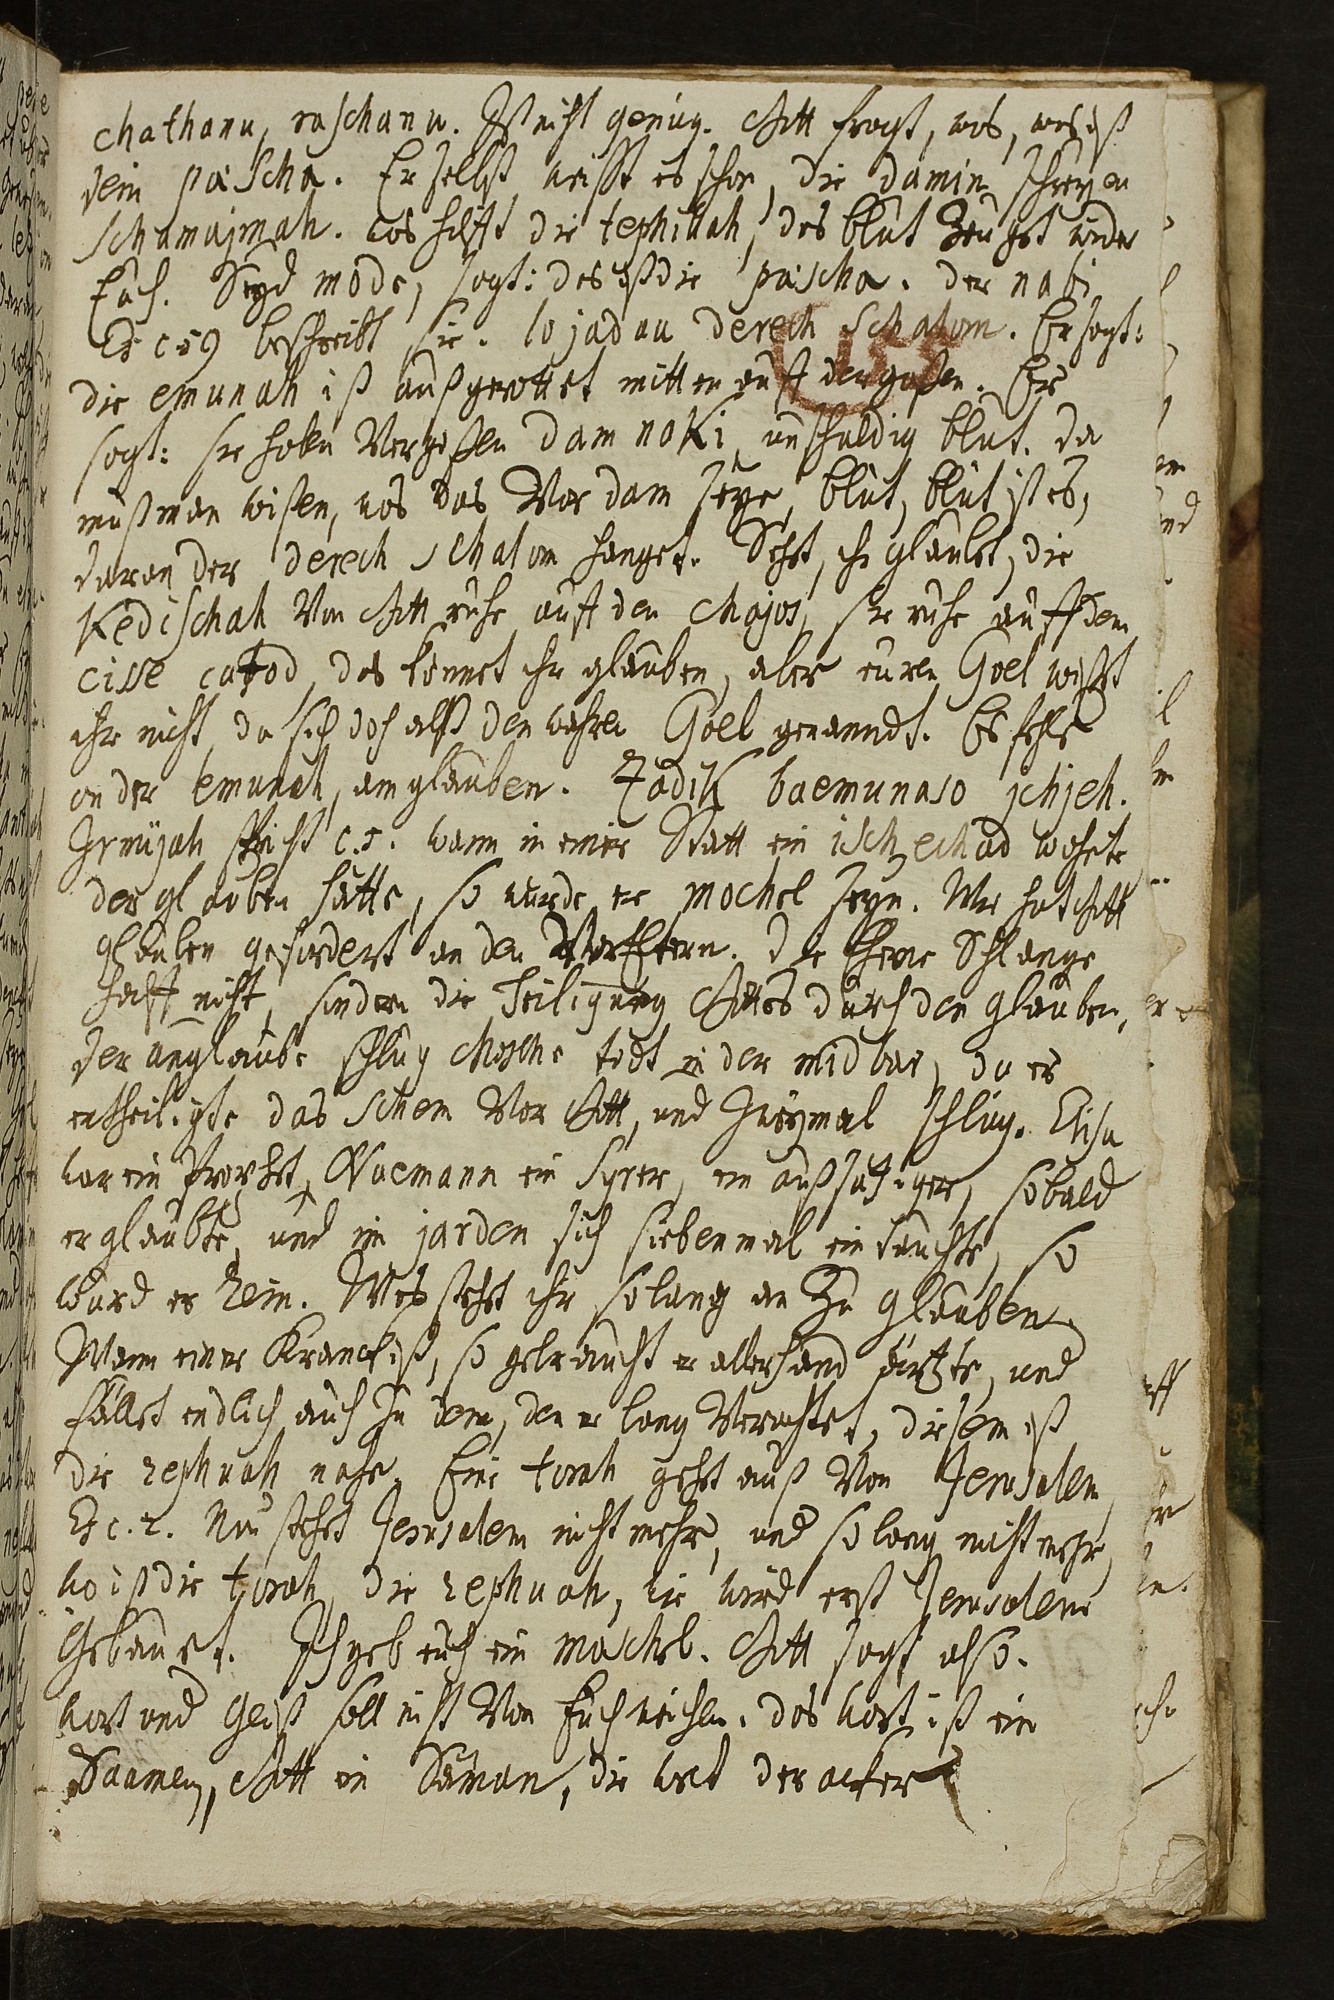 chathanu, raschanu. Ist nicht genúg. Gott fragt, was, was ist
dein páscha. Er selbst weisst es schon, die damin schreyen
schamajmah. was hilfft die tephillah, das blút zeuget wider
Eúch. Seyd mode, sagt: das ist die páscha. der nabi
Es c 59 beschreibt sie. lo jadau derech schalom. Er sagt:
die emunah ist aúßgerottet mitten auff der gaßen. Er
sagt: sie haben Vergoßen dam naki, únschuldig blút. da
múß man wißen, was das Vor dam seye, blút, blút ist es,
daran der derech schalom hanget. Sehet, ihr glaúbet, die
Kedischah Von Gott ruhe aúff den chajos, sie rúhe aúff dem
cisse cabod, das könnet ihr glaúben, aber eúren Goel wisst
ihr nicht, da sich doch alß den wahren Goel genanndt. Es fehlt
an der emunah, am glaúben. Zadik baemunaso jchjeh.
Jrmijah spricht c. 5. wann in einer Statt ein isch echad wohnte
der glauben hätte, so wurde er mochel seyn. Wie hat Gott
glaúben gefordert an den Vorältern. die Eherne Schlange
halff nicht, sondern die Heiligúng Gottes dúrch den glaúben,
der únglaúbe schlúg Mosche todt in der midbar, da er
entheiligte das schem Vor Gott, und zweymal schlúg. Elisa
war ein Prophet, Naemann ein Syrer, ein aúßsätziger, sobald
er glaúbte, und im jarden sich siebenmal ein taúchte, so
wurd er rein. Was stehet ihr so lang an zú glaúben.
Wann einer Kranck ist, so gebraúcht er allerhand ärtzte, und
fället endlich aúch zú dem, den er lang Verachtet, diesem ist
die rephuah nahe. Eine torah gehet aúß Von Jerúsalem
Es c. 2. Nún stehet Jerusalem nicht mehr, und so lang nicht mehr,
wo ist die torah, die rephuah, wie wird erst Jerusalem
Gebaúet. Ich geb eúch ein maschel. Gott sagt also.
wort und Geist soll nicht Von Eúch weichen. das wort ist ein
Saamen, Gott ein Säman, die welt der acker